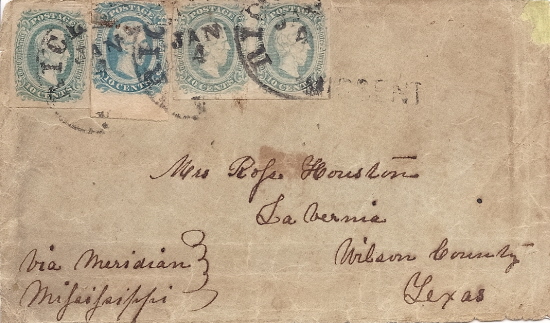 POSTAGE POSTAGE POSTAGE POSTAGE
JAN JAN JAN
4 4
TEN CENTS TEN CENTS TEN CENTS TEN CENTS
Mrs Rose Houston
La Vernia
Wilson County
Texas
via Meridian
Mississippi